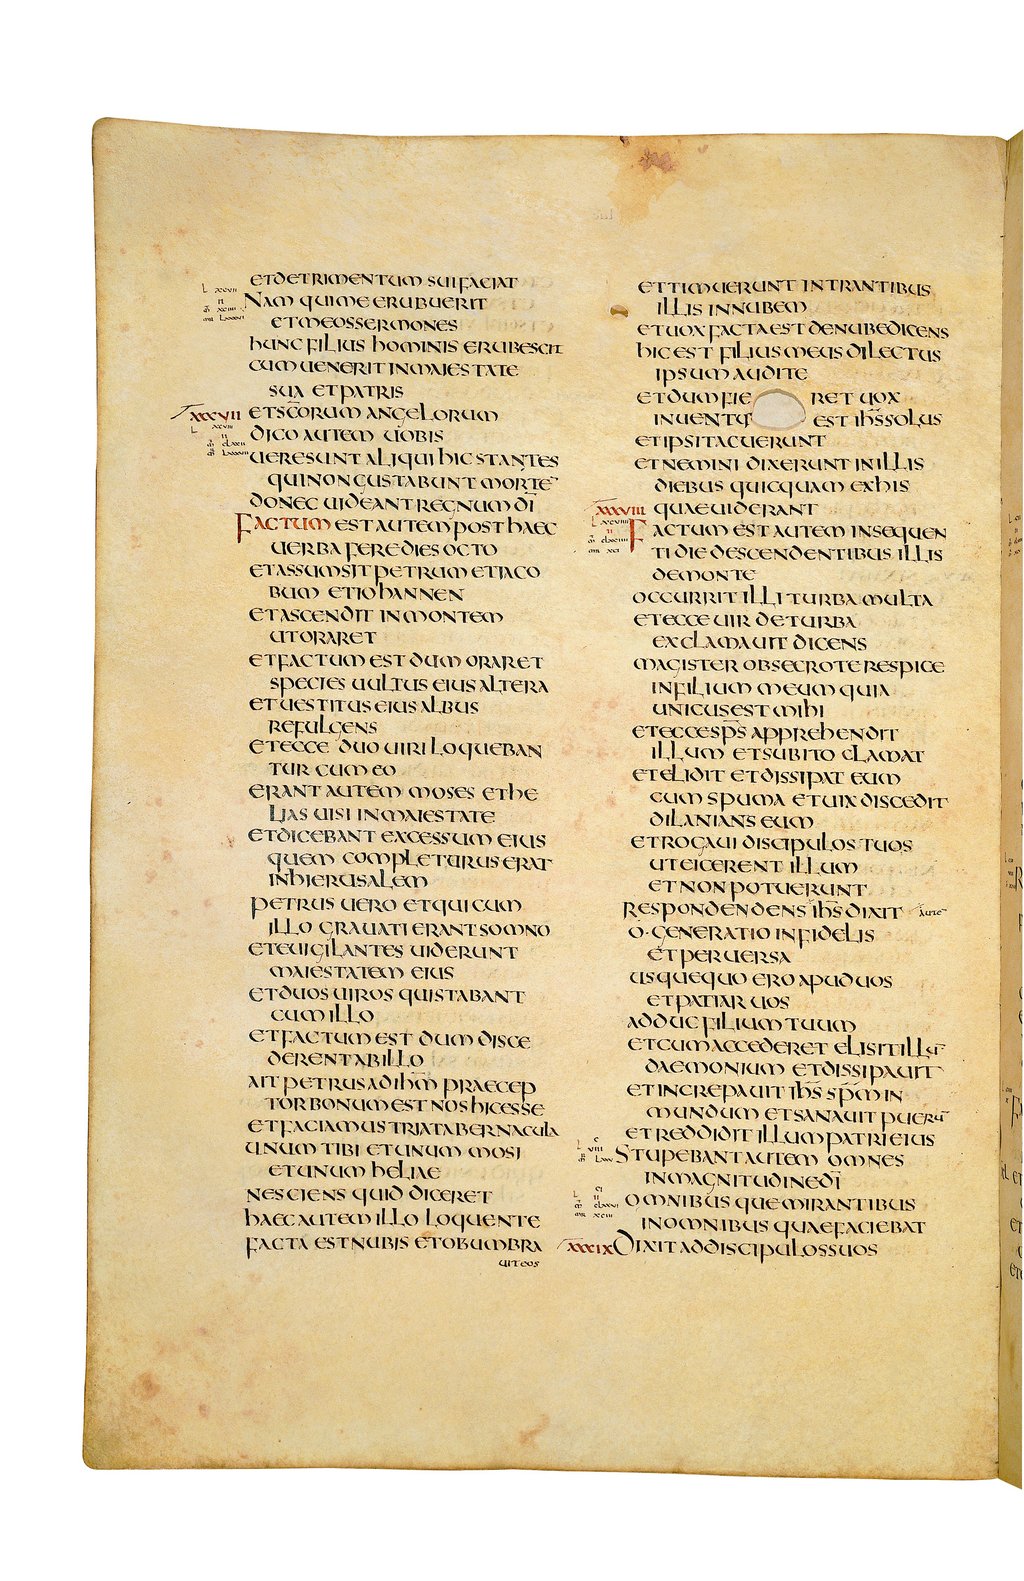 ETDETRIMENTUM SUI FACIAT
NAM QUI ME ERUBUERIT
ET MEOS SERMONES
HUNC FILIUS HOMINIS ERUBESCIT
CUM UENERIT IN MAIESTATE
SUA ET PATRIS
XXXVII ET SC̄ORUM ANGELORUM
DICO AUTEM UOBIS
UERE SUNT ALIQUI HIC STANTES
QUI NON GUSTABUNT MORTE‾
DONEC UIDEANT REGNUM DĪ
FACTUM EST AUTEM POST HAEC
UERBA FERE DIES OCTO
ET ASSUMSIT PETRUM ET IACO
BUM ET IOHANNEN
ET ASCENDIT IN MONTEM
UT ORARET
ET FACTUM EST DUM ORARET
SPECIES UULTUS EIUS ALTERA
ET UESTITUS EIUS ALBUS
REFULGENS
ET ECCE DUO UIRI LOQUEBAN
TUR CUM EO
ERANT AUTEM MOSES ET HE
LIAS UISI IN MAIESTATE
ET DICEBANT EXCESSUM EIUS
QUEM COMPLETURUS ERAT
IN HIERUSALEM
PETRUS UERO ET QUI CUM
ILLO GRAUATI ERANT SOMNO
ET EUIGILANTES UIDERUNT
MAIESTATEM EIUS
ET DUOS UIROS QUI STABANT
CUM ILLO
ET FACTUM EST DUM DISCE
DERENT AB ILLO
AIT PETRUS AD IHM̄ PRAECEP
TOR BONUM EST NOS HIC ESSE
ET FACIAMUS TRIA TABERNACULA
UNUM TIBI ET UNUM MOSI
ET UNUM HELIAE
NESCIENS QUID DICERET
HAEC AUTEM ILLO LOQUENTE
FACTA EST NUBIS ET OBUMBRA
UIT EOS
ET TIMUERUNT INTRANTIBUS
ILLIS IN NUBEM
ET UOX FACTA EST DE NUBE DICENS
HIC EST FILIUS MEUS DILECTUS
IPSUM AUDITE
ET DUM FIE RET UOX
INUENTUS EST IHS̄ SOLUS
ET IPSI TACUERUNT
ET NEMINI DIXERUNT IN ILLIS
DIEBUS QUICQUAM EX HIS
XXXVIII QUAE UIDERANT
FACTUM EST AUTEM IN SEQUEN
TI DIE DESCENDENTIBUS ILLIS
DE MONTE
OCCURRIT ILLI TURBA MULTA
ET ECCE UIR DE TURBA
EXCLAMAUIT DICENS
MAGISTER OBSECRO TE RESPICE
IN FILIUM MEUM QUIA
UNICUS EST MIHI
ET ECCE SPS̄ APPREHENDIT
ILLUM ET SUBITO CLAMAT
ET ELIDIT ET DISSIPAT EUM
CUM SPUMA ET UIX DISCEDIT
DILANIANS EUM
ET ROGAUI DISCIPULOS TUOS
UT EICERENT ILLUM
ET NON POTUERUNT
RESPONDENDENS IHS̄ DIXIT AUTE‾
O · GENERATIO INFIDELIS
ET PERUERSA
USQUEQUO ERO APUD UOS
ET PATIAR UOS
ADDUC FILIUM TUUM
ET CUM ACCEDERET ELISIT ILLU‾
DAEMONIUM ET DISSIPAUIT
ET INCREPAUIT IHS̄ SPM̄ IN
MUNDUM ET SANAUIT PUERU‾
ET REDDIDIT ILLUM PATRI EIUS
STUPEBANT AUTEM OMNES
IN MAGNITUDINE DĪ
OMNIBUSQUE MIRANTIBUS
IN OMNIBUS QUAE FACIEBAT
XXXIX DIXIT AD DISCIPULOS SUOS